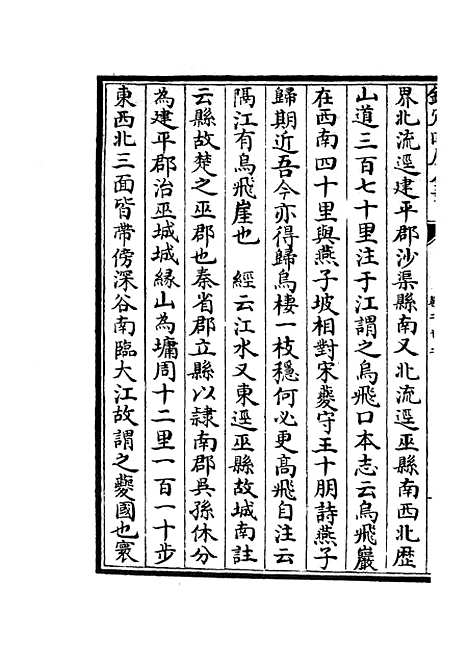 界北流逕建平郡沙渠縣南又北流逕巫縣南西北歴
山道三百七十里注于江謂之烏飛口本志云烏飛巖
在西南四十里與燕子坡相對宋夔守王十朋詩燕子
歸期近吾今亦得歸烏棲一枝穩何必更高飛自注云
隅江有烏飛崖也　經云江水又東逕巫縣故城南註
云縣故楚之巫郡也秦省郡立縣以隷南郡吳孫休分
為建平郡治巫城城縁山為墉周十二里一百一十步
東西北三面皆帶傍深谷南臨大江故謂之夔國也寰